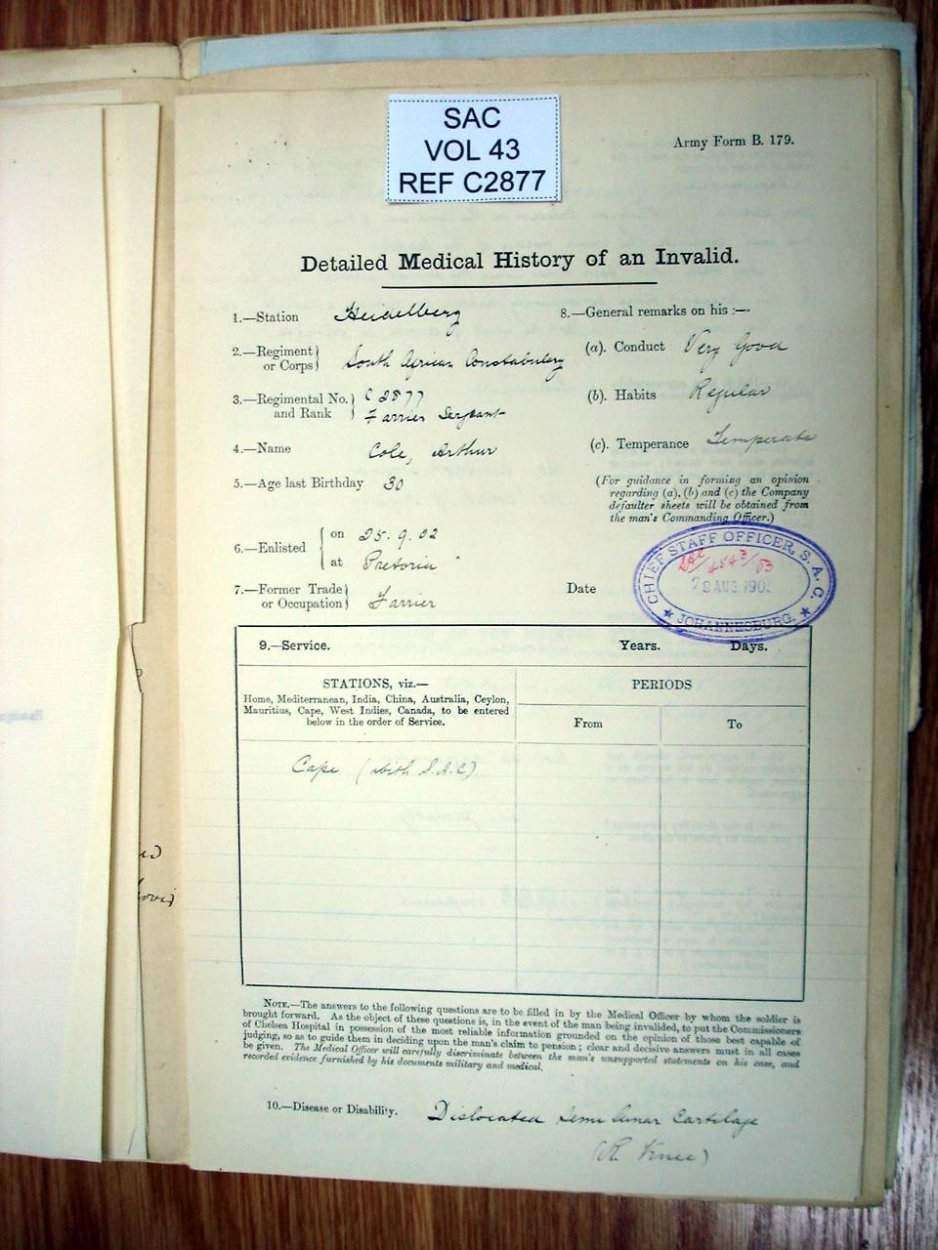 SAC
VOL 43
REF C2877
Army Form B. 179.
Detailed Medical History of an Invalid.
1.—Station Heidelberg
2.—Regiment or Corps} South African Constabulary
3.—Regimental No. and Rank} C 2877
Farrier Sergeant
4.—Name Cole, Arthur
5.—Age last Birthday 30
6.—Enlisted { on 25.9.02
at Pretoria
7.—Former Trade or Occupation} Farrier
8.—General remarks on his :—
(a). Conduct Very Good
(b). Habits Regular
(c). Temperance Temperate
(For guidance in forming an opinion
regarding (a), (b) and (c) the Company
defaulter sheets will be obtained from
the man's Commanding Officer.)
Date
CHIEF STAFF OFFICER, S.A.C.
4543/03
AUG 190
★ JOHANNESBURG. ★
9.—Service. Years. Days.
STATIONS, viz.—
Home, Mediterranean, India, China, Australia, Ceylon,
Mauritius, Cape, West Indies, Canada, to be entered
below in the order of Service.
PERIODS
From To
Cape (with S.A.C)
NOTE.—The answers to the following questions are to be filled in by the Medical Officer by whom the soldier is
brought forward. As the object of these questions is, in the event of the man being invalided, to put the Commissioners
of Chelsea Hospital in possession of the most reliable information grounded on the opinion of those best capable of
judging, so as to guide them in deciding upon the man's claim to pension; clear and decisive answers must in all cases
be given. The Medical Officer will carefully discriminate between the man's unsupported statements on his case, and
recorded evidence furnished by his documents military and medical.
10.—Disease or Disability. Dislocated Semi lunar Cartilage
(R Knee)